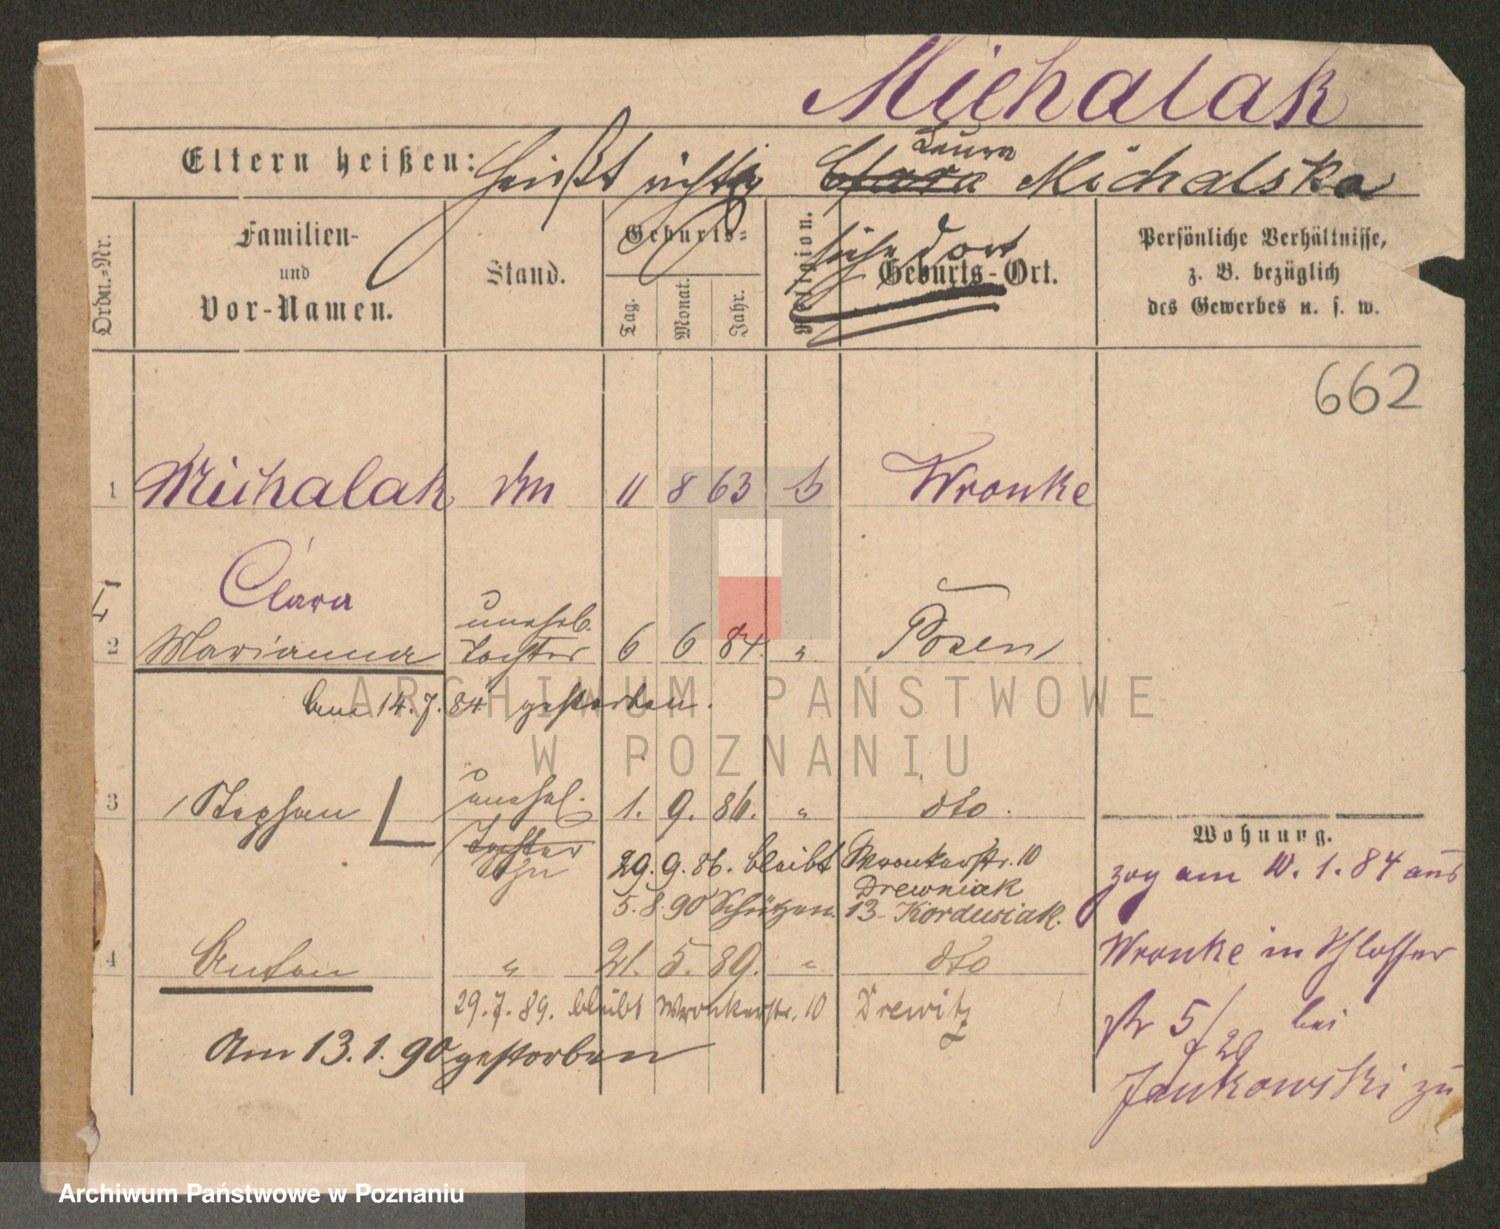 Michalak
Eltern heißen: heißt richtig Clara Laura Michalska
siehe dort
Ordn.-Nr.
Familien-
und
Vor-Namen.
Stand.
Geburts-
Tag.
Monat.
Jahr.
Religion.
Geburts-Ort.
Persönliche Verhältnisse,
z. B. bezüglich
des Gewerbes u. s. w.
662
1 Michalak 11 8 63 Wronke
Clara
2 Marianna unehel. Tochter 6 6 84. " Posen
am 14.7.84 gestorben.
3 Stephan unehel. Tochter Sohn 1. 9. 86. " dto.
29.9.86. bleibt Wronkerstr. 10
Drewniak
5.8.90 Schützen 13 Kordusiak.
4 Anton " 21. 5. 89. " dto
29.7.89. bleibt Wronkerstr. 10 Drewitz
Am 13.1.90 gestorben
Wohnung.
zog am 10.1.84 aus
Wronke in Schlosser
str 5/29 bei
Jankowski zu
ARCHIWUM PAŃSTWOWE
W POZNANIU
Archiwum Państwowe w Poznaniu